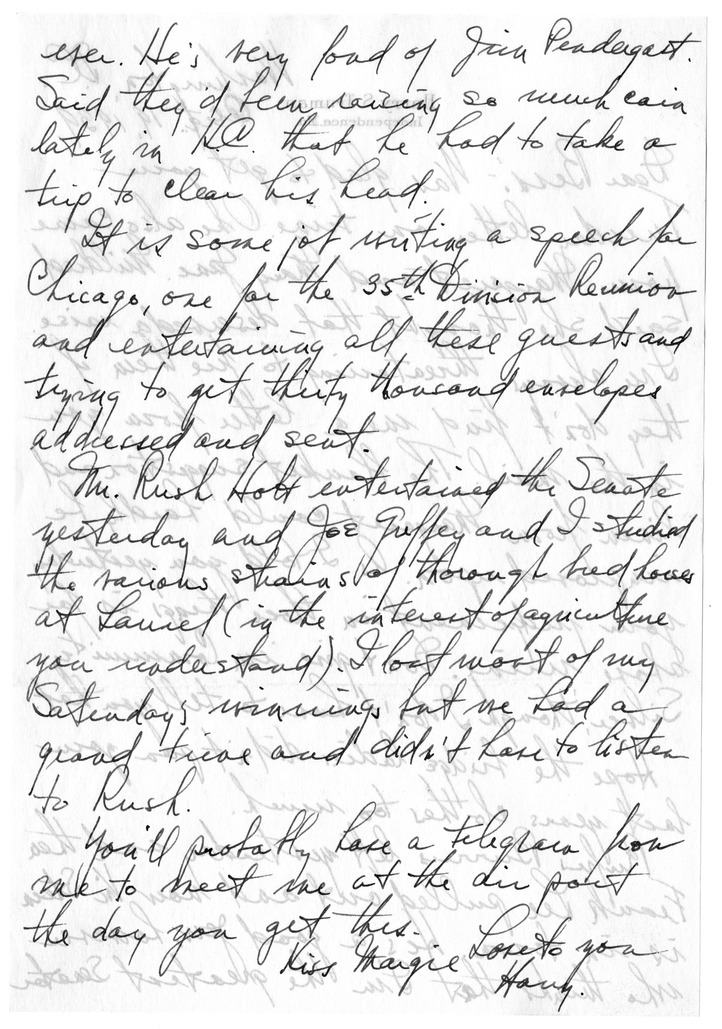 ever. He's very fond of Jim Pendergast.
Said they'd been raising so much cain
lately in K.C. that he had to take a
trip to clear his head.
It is some job writing a speech for
Chicago, one for the 35th Division Reunion
and entertaining all these guests and
trying to get thirty thousand envelopes
addressed and sent.
Mr. Rush Holt entertained the Senate
yesterday and Joe Guffey and I studied
the various strains of thorough bred horses
at Laurel (in the interest of agriculture
you understand). I lost most of my
Saturday's winnings but we had a
grand time and didn't have to listen
to Rush.
You'll probably have a telegram from
me to meet me at the air port
the day you get this.
Kiss Margie Love to you
Harry.